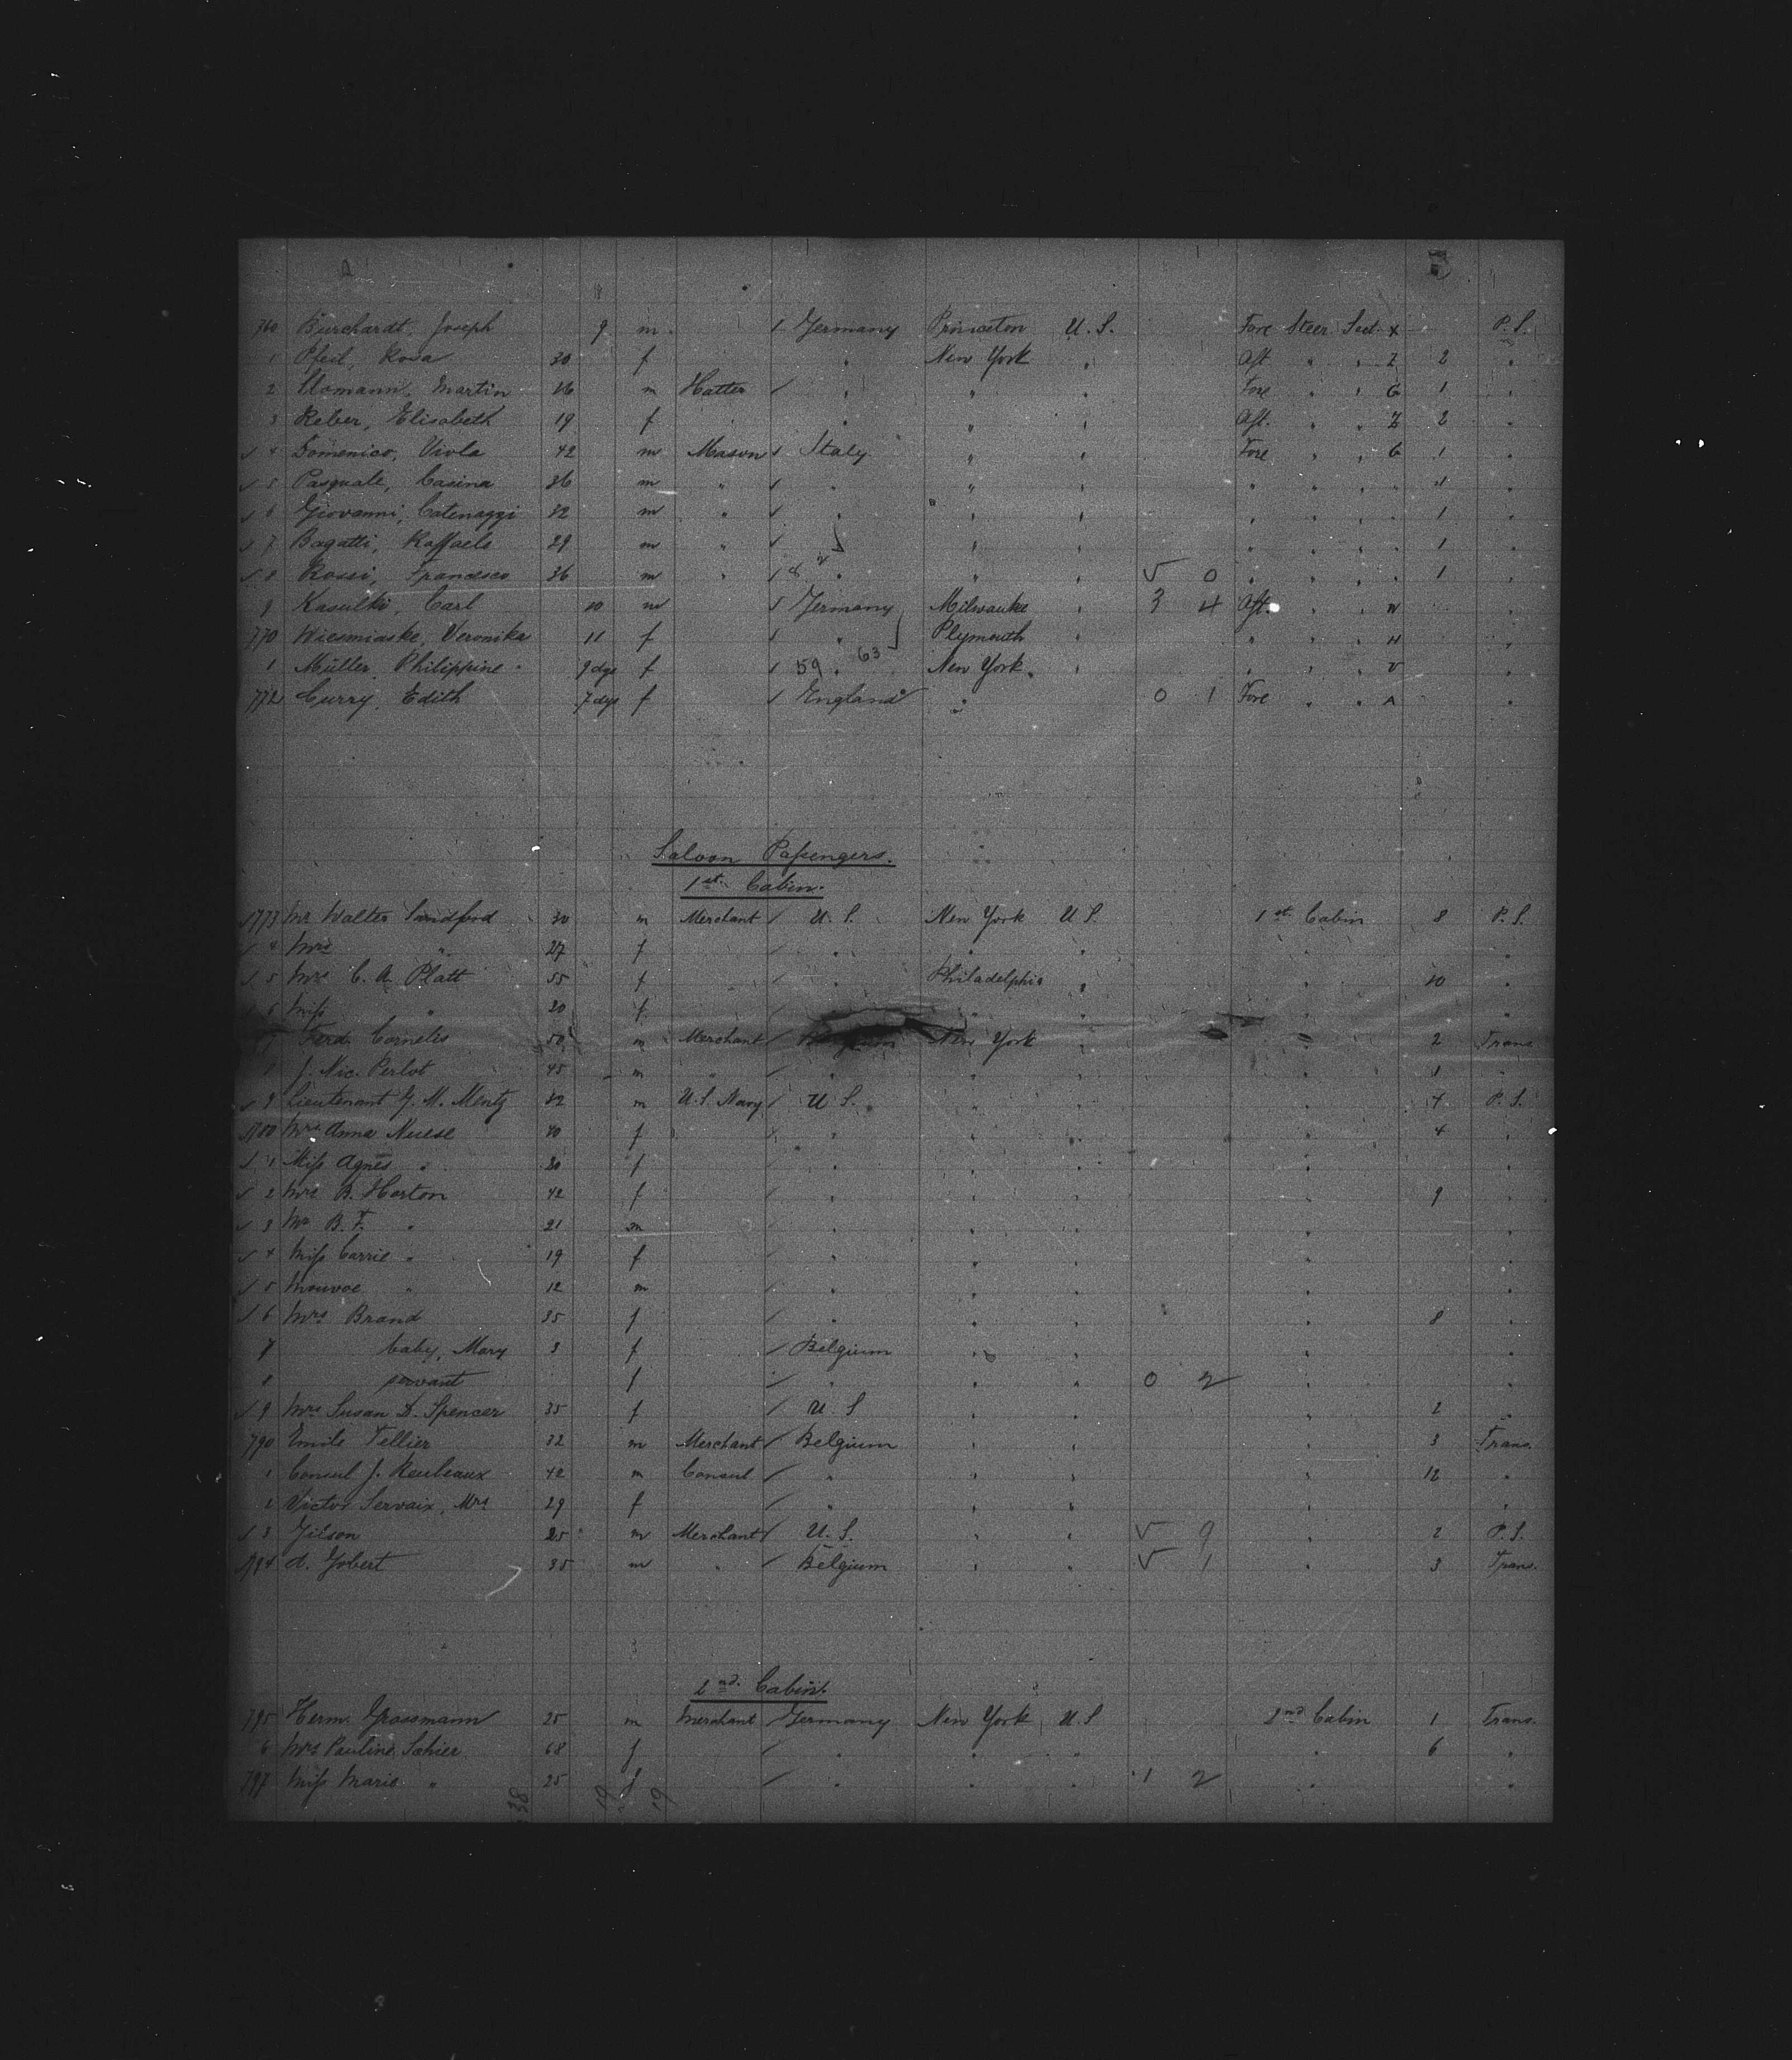 760 Burchardt, Joseph 9 m / Germany Princeton U.S. Fore Steer Sect. X P.S.
1 Pfeil, Rosa 20 f " New York " Aft " " Z 2 "
2 Martin 26 m Hatter / " " " Fore " " G 1 "
3 Reber, Elisabeth 19 f " " " Aft. " " Z 2 "
4 Domenico, Viola 42 m Mason / Italy " " Fore " " G 1 "
5 Pasquale, Casina 36 m " / " " " " " " " 1 "
6 Giovanni, Catenazzi 32 m " / " " " " " " " 1 "
7 Bagatti, Raffaele 29 m " / " " " " " " " 1 "
8 Rossi, Francesco 36 m " / " " " 5 0 " " " " 1 "
9 Kasulki, Carl 10 m / Germany Milwaukee " 3 4 Aft. " " W "
770 Wiesmiaske, Veronika 11 f / " Plymouth " " " " H "
63
1 Müller, Philippine 9 dys f / 59 " New York " " " " V "
772 Curry, Edith 7 dys f / England " 0 1 Fore " " A "
Saloon Passengers.
1st Cabin.
773 Mr Walter Sandford 30 m Merchant / U.S. New York U.S. 1st Cabin 8 P.S.
4 Mrs " 27 f / " " " " "
5 Mrs C. A. Platt 55 f / " Philadelphia " " 10 "
6 Miss " 20 f / " " " "
7 Ferd. Cornelis 50 m Merchant / New York " 2 Trans
8 J. Nic. Perlot 45 m " / " " " " 1 "
9 Lieutenant G. M. Mentz 32 m U.S. Navy / U.S. " " " 4 P.S.
780 Mrs Anna Nuese 40 f / " " " " 4 "
1 Miss Agnes " 20 f / " " " " "
2 Mrs B. Horton 42 f / " " " " 9 "
3 Mr B. F. " 21 m / " " " " "
4 Miss Carrie " 19 f / " " " " "
5 Monroe " 12 m / " " " " "
6 Mrs Brand 35 f / " " " " 8 "
7 baby, Mary 3 f / Belgium " " " "
8 servant f / " " " 0 2 " "
9 Mrs Susan D. Spencer 35 f / U S " " " 2 "
790 Emile Tellier 32 m Merchant / Belgium " " " 3 Trans.
1 Consul J. Reuleaux 42 m Consul / " " " " 12 "
2 Victor Servaix, Mrs 29 f / " " " " "
3 Gilson 25 m Merchant / U.S. " " 5 9 " 2 P.S.
794 d. Gobert 35 m " / Belgium " " 5 1 " 3 Trans.
2nd Cabin.
795 Herm. Grossmann 25 m Merchant / Germany New York U.S 2nd Cabin 1 Trans.
6 Mrs Pauline Sahier 68 f / " " " " 6 "
797 Miss Marie " 25 f / " " " 1 2 " "
38 19 19